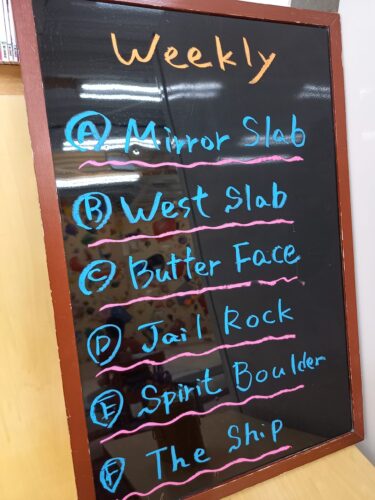 Weekly
Ⓐ Mirror Slab
Ⓑ West Slab
Ⓒ Butter Face
Ⓓ Jail Rock
Ⓔ Spirit Boulder
Ⓕ The Ship